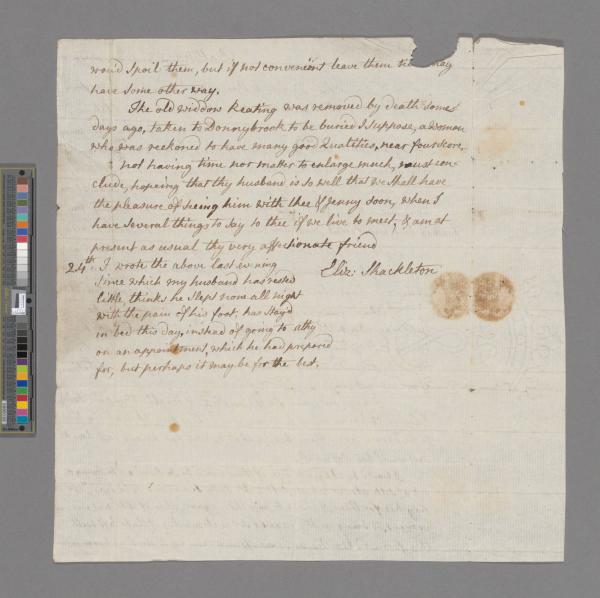 wou'd spoil them, but if not convenient leave them may
have some other way.
The old widdow Keating was removed by death some
days ago, taken to Donnybrook to be buried I suppose, a woman
who was reckoned to have many good qualities, near fourscore,
not having time nor matter to enlarge much, must con-
clude, hopeing that thy husband is so well that we shall have
the pleasure of seeing him with thee & Jenny soon, when I
have several things to say to thee if we live to meet, & am at
present as usual thy very affectionate friend
Eliz: Shackleton
24th. I wrote the above last evening
since which my husband has rested
little, thinks he slept none all night
with the pain of his foot, has stay'd
in bed this day, instead of going to Athy
on an appointment, which he had prepared
for, but perhaps it may be for the best.